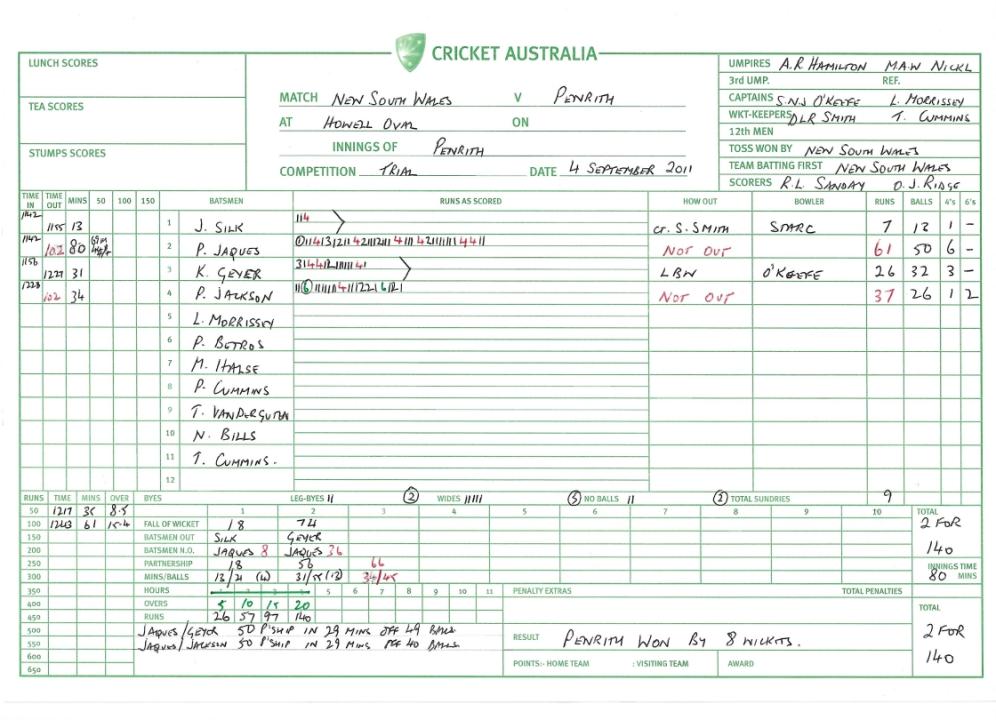 CRICKET AUSTRALIA
LUNCH SCORES
TEA SCORES
STUMPS SCORES
MATCH NEW SOUTH WALES V PENRITH
AT HOWELL OVAL ON
INNINGS OF PENRITH
COMPETITION TRIAL DATE 4 SEPTEMBER 2011
UMPIRES A.R HAMILTON M.A.W NICKL
3rd UMP. REF.
CAPTAINS S.N.J O'KEEFE L. MORRISSEY
WKT-KEEPERS DLR SMITH T. CUMMINS
12th MEN
TOSS WON BY NEW SOUTH WALES
TEAM BATTING FIRST NEW SOUTH WALES
SCORERS R.L. SANDAY D.J. RIDGE
TIME IN TIME OUT MINS 50 100 150 BATSMEN RUNS AS SCORED HOW OUT BOWLER RUNS BALLS 4's 6's
1142 1155 13 1 J. SILK 114 CT. S. SMITH STARC 7 13 1 -
1142 102 80 2 P. JAQUES NOT OUT 61 50 6 -
1156 1227 31 3 K. GEYER LBW O'KEEFE 26 32 3 -
1228 102 34 4 P. JACKSON NOT OUT 37 26 1 2
5 L. MORRISSEY
6 P. BETROS
7 M. HALSE
8 P. CUMMINS
9 T. VANDERGUTEN
10 N. BILLS
11 T. CUMMINS.
12
RUNS TIME MINS OVER BYES LEG-BYES II (2) WIDES IIIII (5) NO BALLS II (2) TOTAL SUNDRIES 9
50 1217 35 8.5 1 2 3 4 5 6 7 8 9 10 TOTAL
100 1243 61 15.4 FALL OF WICKET 18 74 2 FOR
150 BATSMEN OUT SILK GEYER
200 BATSMEN N.O. JAQUES 8 JAQUES 36 140
250 PARTNERSHIP 18 56 66 INNINGS TIME
300 MINS/BALLS 13/21 (4) 31/55 (13) 34/45 80 MINS
350 HOURS 1 2 3 4 5 6 7 8 9 10 11 PENALTY EXTRAS TOTAL PENALTIES
400 OVERS 5 10 15 20 TOTAL
450 RUNS 26 57 97 140
500 JAQUES/GEYER 50 P'SHIP IN 29 MINS OFF 49 BALLS 2 FOR
550 JAQUES/JACKSON 50 P'SHIP IN 29 MINS OFF 40 BALLS RESULT PENRITH WON BY 8 WICKETS. 140
600
650 POINTS:- HOME TEAM : VISITING TEAM AWARD